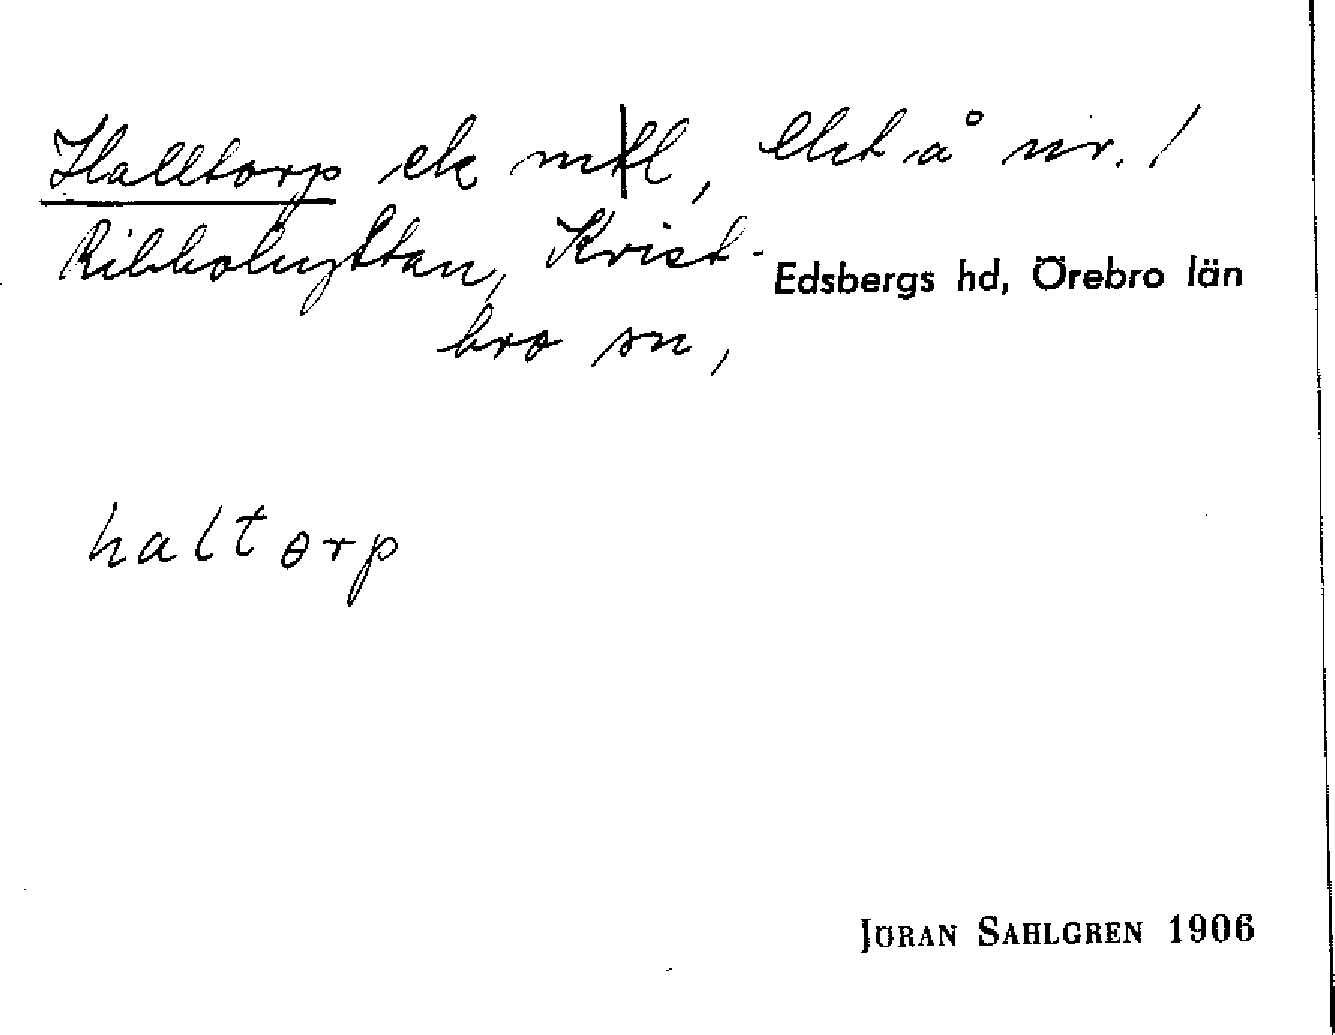 Halltorp ek mtl, lht å nr. 1
Ribbohyttan, Krist-
bro sn,
Edsbergs hd, Örebro län
haltorp
JÖRAN SAHLGREN 1906